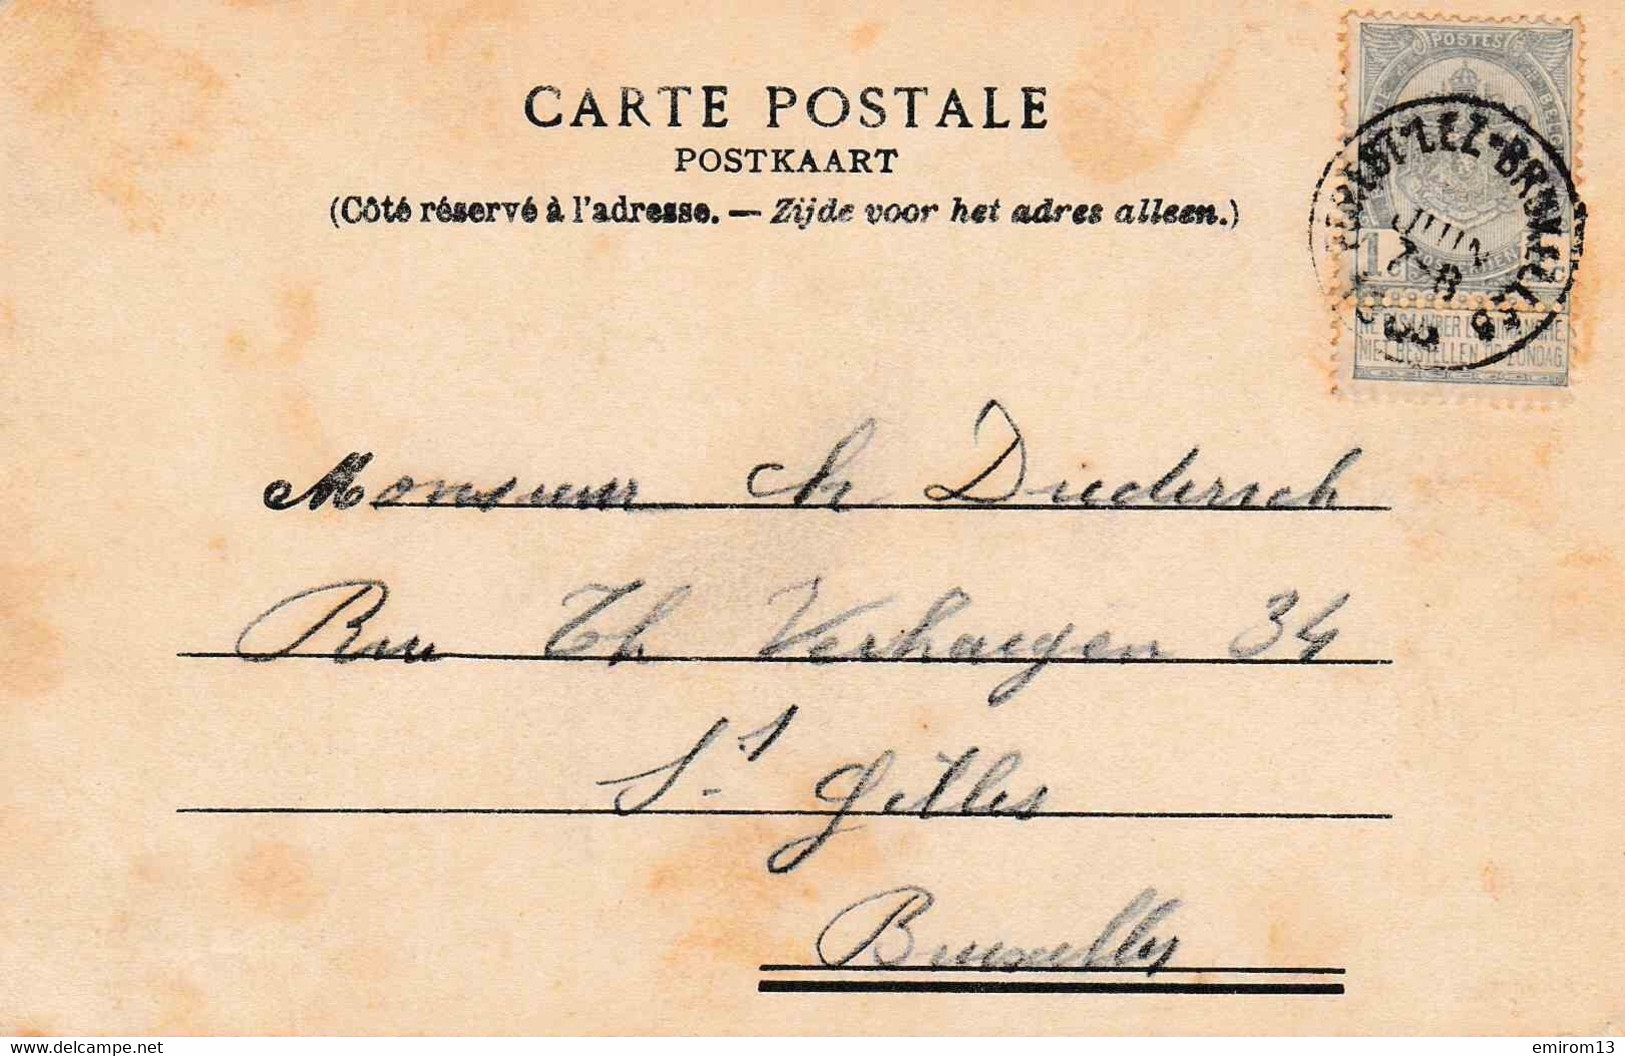 CARTE POSTALE
POSTKAART
(Côté réservé à l'adresse. — Zijde voor het adres alleen.)
POSTES
1 c
NE PAS LIVRER LE DIMANCHE.
NIET BESTELLEN OP ZONDAG
LEZ-BRUXELLES
JUIN
7-8
Monsieur Ch Diedersch
Rue Th Verhaegen 34
St Gilles
Bruxelles
delcampe.net
emirom13